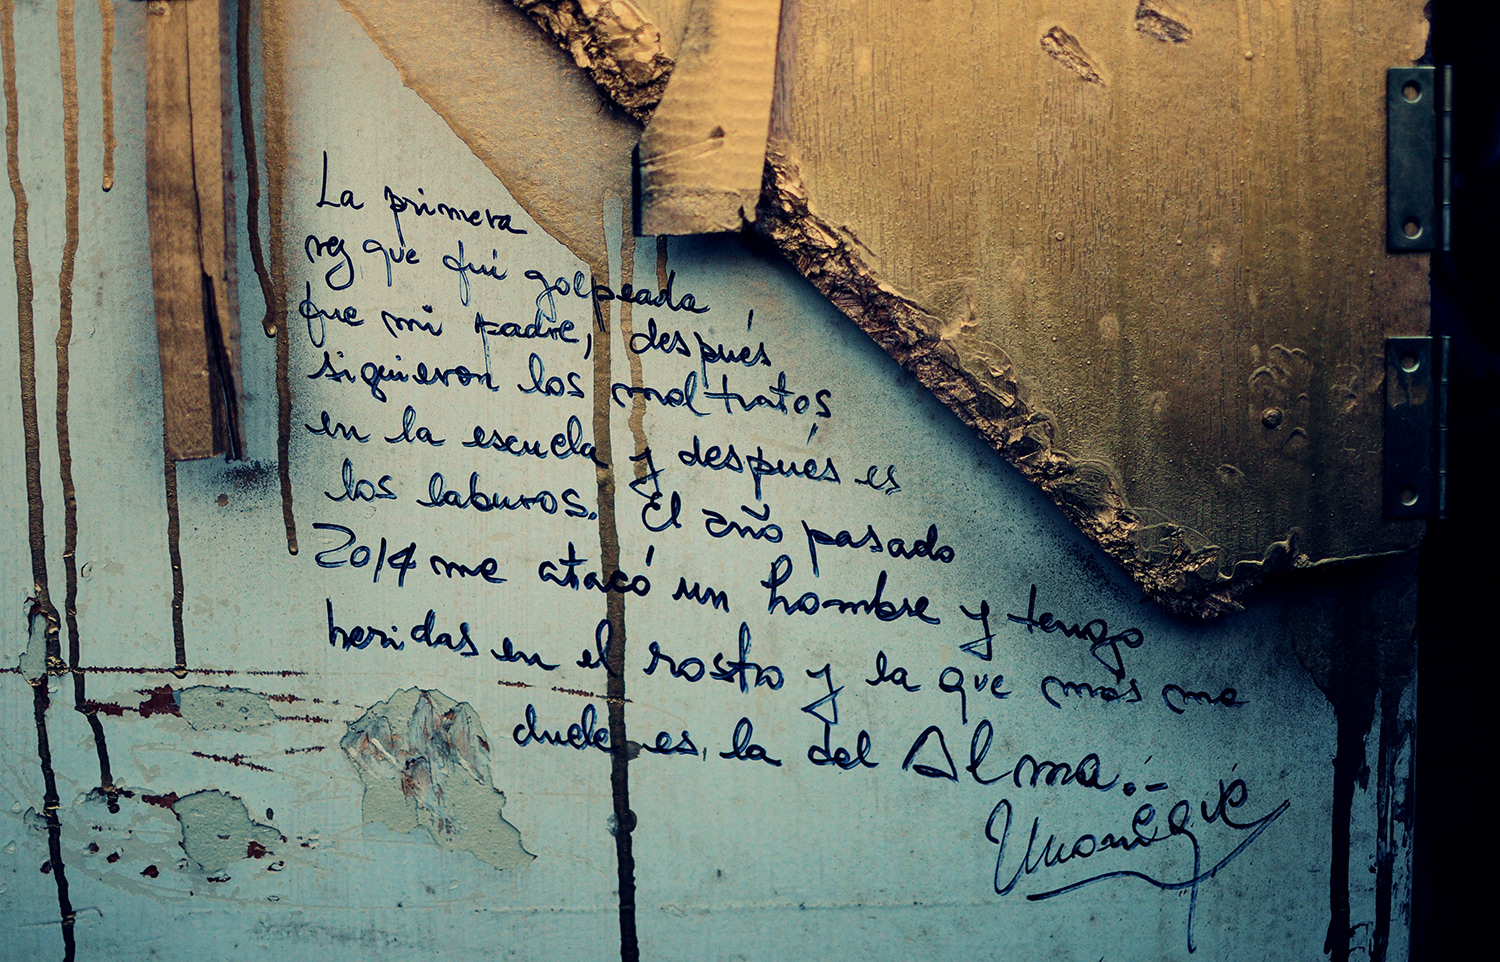 La primera
vez que fui golpeada
fue mi padre, después
siguieron los maltratos
en la escuela y después es
los laburos. El año pasado
2014 me atacó un hombre y tengo
heridas en el rostro y la que mas me
duele es, la del Alma.-